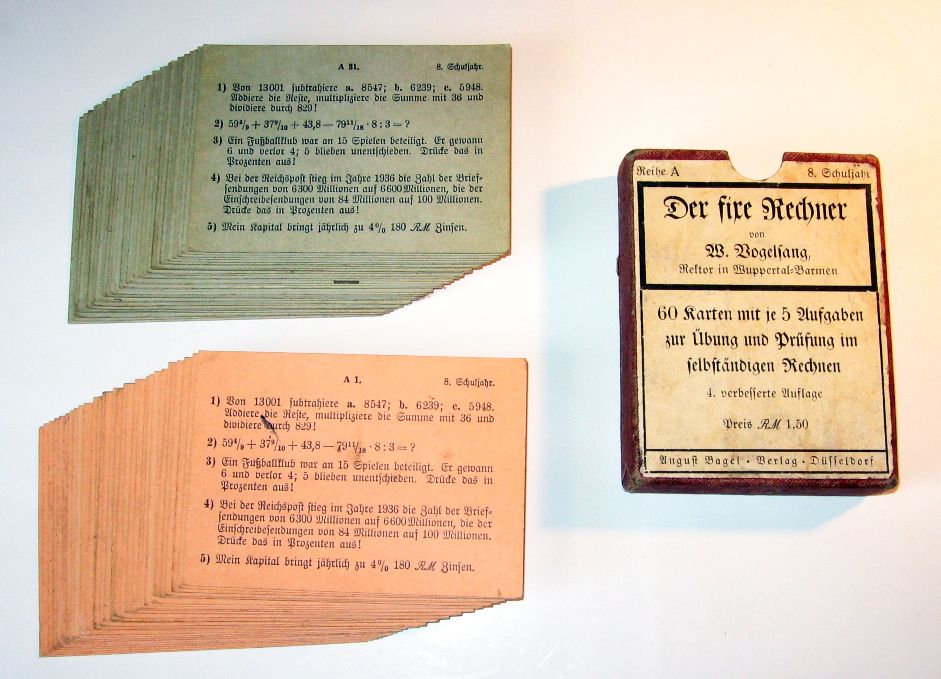 A 31.
8. Schuljahr.
1) Von 13001 subtrahiere a. 8547; b. 6239; c. 5948.
Addiere die Reste, multipliziere die Summe mit 36 und
dividiere durch 829!
2) 59⁴/₉ + 37⁹/₁₀ + 43,8 — 79¹¹/₁₈ · 8 : 3 = ?
3) Ein Fußballklub war an 15 Spielen beteiligt. Er gewann
6 und verlor 4; 5 blieben unentschieden. Drücke das in
Prozenten aus!
4) Bei der Reichspost stieg im Jahre 1936 die Zahl der Brief-
sendungen von 6300 Millionen auf 6600 Millionen, die der
Einschreibesendungen von 84 Millionen auf 100 Millionen.
Drücke das in Prozenten aus!
5) Mein Kapital bringt jährlich zu 4% 180 RM Zinsen.
A 1.
8. Schuljahr.
1) Von 13001 subtrahiere a. 8547; b. 6239; c. 5948.
Addiere die Reste, multipliziere die Summe mit 36 und
dividiere durch 829!
2) 59⁴/₉ + 37⁹/₁₀ + 43,8 — 79¹¹/₁₈ · 8 : 3 = ?
3) Ein Fußballklub war an 15 Spielen beteiligt. Er gewann
6 und verlor 4; 5 blieben unentschieden. Drücke das in
Prozenten aus!
4) Bei der Reichspost stieg im Jahre 1936 die Zahl der Brief-
sendungen von 6300 Millionen auf 6600 Millionen, die der
Einschreibesendungen von 84 Millionen auf 100 Millionen.
Drücke das in Prozenten aus!
5) Mein Kapital bringt jährlich zu 4% 180 RM Zinsen.
Reihe A
8. Schuljahr
Der fixe Rechner
von
W. Vogelsang,
Rektor in Wuppertal-Barmen
60 Karten mit je 5 Aufgaben
zur Übung und Prüfung im
selbständigen Rechnen
4. verbesserte Auflage
Preis RM 1.50
August Bagel · Verlag · Düsseldorf